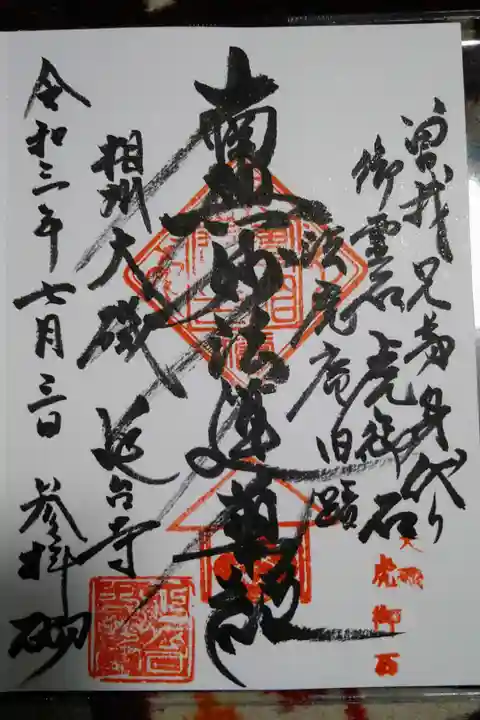 曽我兄弟身代り
御霊石 虎御石
法虎庵旧蹟
南無妙法蓮華経
相州大磯 延台寺
令和三年七月三日 参拝
虎御石